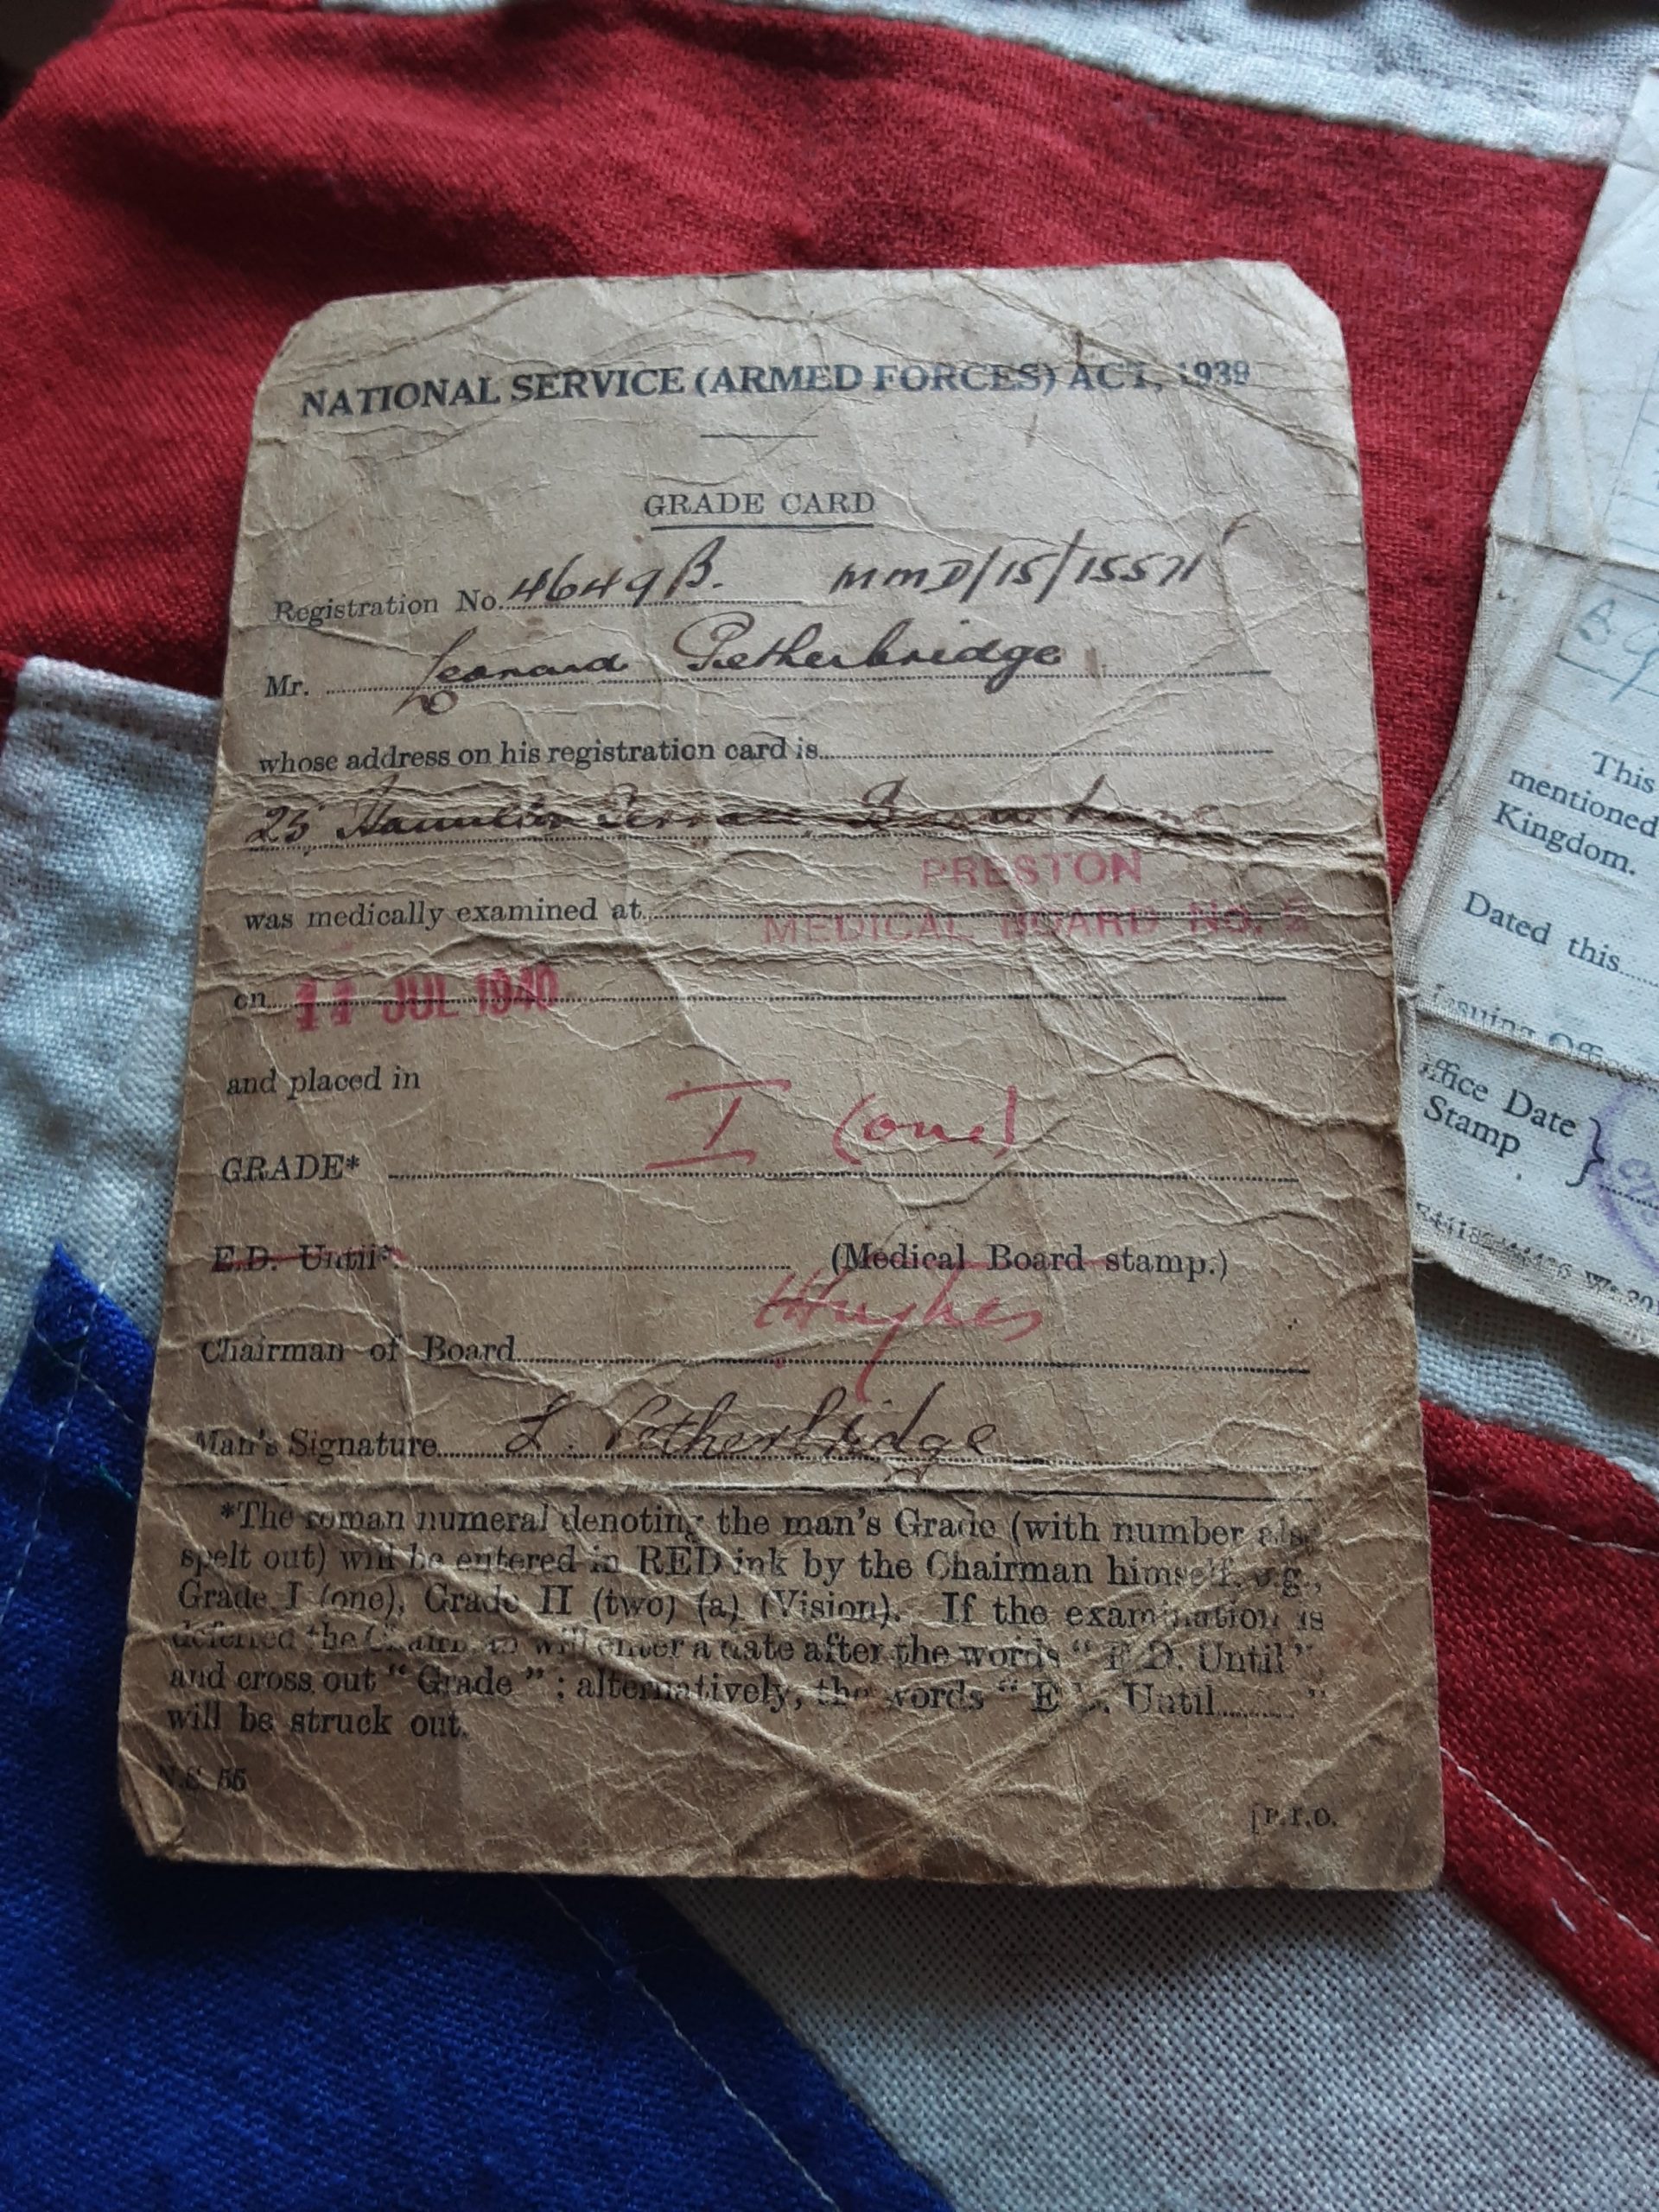 NATIONAL SERVICE (ARMED FORCES) ACT, 1939
GRADE CARD
Registration No. 4649 B. MMD/15/15571
Mr. Leonard Petherbridge
whose address on his registration card is
25 Hamilton Terrace
was medically examined at PRESTON
MEDICAL BOARD NO. 2
on 11 JUL 1940
and placed in
GRADE* I (one)
E.D. Until*. (Medical Board stamp.)
Chairman of Board Hughes
Man's Signature L. Petherbridge
*The roman numeral denoting the man's Grade (with number also
spelt out) will be entered in RED ink by the Chairman himself, e.g.,
Grade I (one), Grade II (two) (a) (Vision). If the examination is
deferred the Chairman will enter a date after the words "E.D. Until"
and cross out "Grade"; alternatively, the words "E.D. Until........."
will be struck out.
N.S. 55
[P.T.O.
This
mentioned
Kingdom.
Dated this
Issuing Officer
Office Date
Stamp